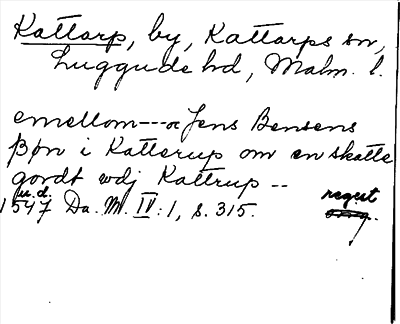 Kattarp, by, Kattarps sn,
Luggude hd, Malm. l.
emellom --- oc Jens Bensens
Bøn i Katterup om en skatte
gordt udj Kattrup --
u.d.
1547 Da. M. IV:1, s. 315.
regest
orig.